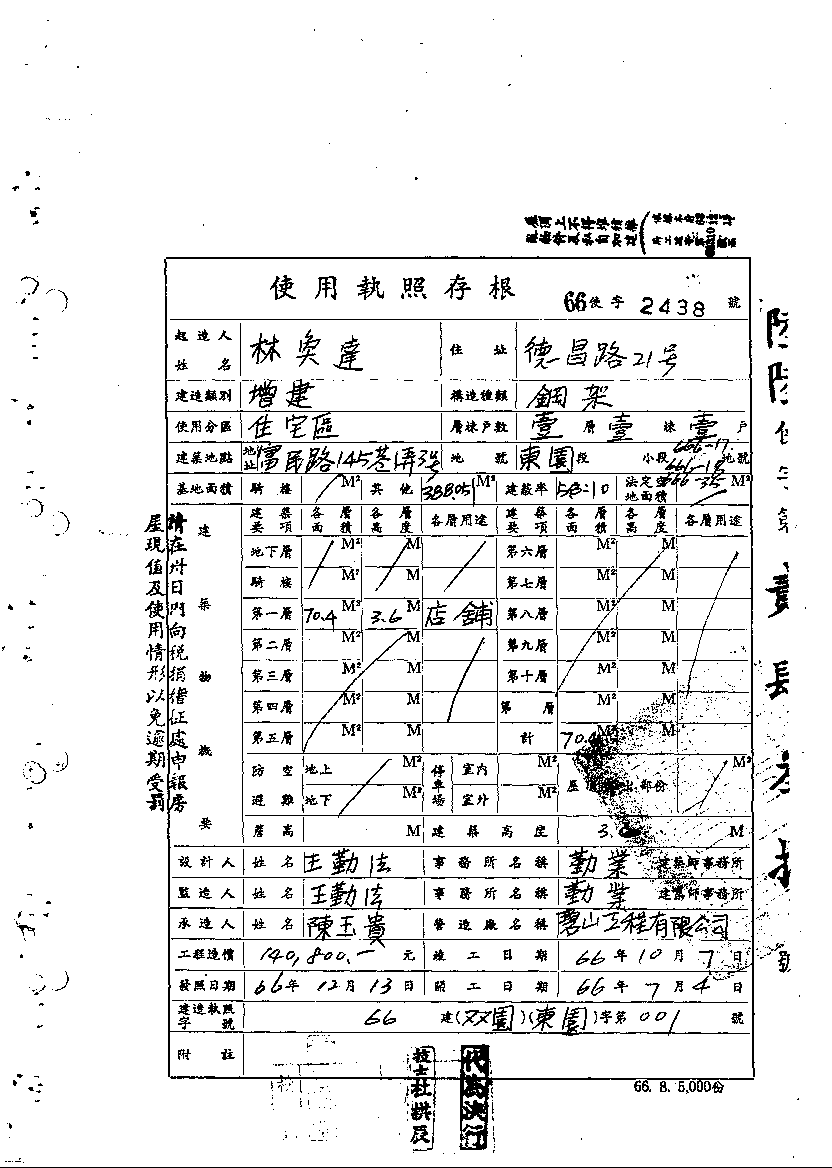 使用執照存根
66使字2438號
起造人姓名 林奐達 住址 德昌路21号
建造類別 增建 構造種類 鋼架
使用分區 住宅區 層棟戶數 壹層壹棟壹戶
建築地點 地址 富民路145巷弄3号 地號 東園段 小段 地號
666-17
基地面積 騎樓 M² 其他 388.05 M² 建蔽率 58.10 法定空地面積 M²
建築物概要
建築要項 各層面積 各層高度 各層用途 建築要項 各層面積 各層高度 各層用途
地下層 M² M 第六層 M² M
騎樓 M² M 第七層 M² M
第一層 70.4 M² 3.6 M 店舖 第八層 M² M
第二層 M² M 第九層 M² M
第三層 M² M 第十層 M² M
第四層 M² M 第 層 M² M
第五層 M² M 計 70.4 M²
防空避難 地上 M² 停車場 室內 M² M²
地下 M² 室外 M²
簷高 M 建築高度 3. M
設計人 姓名 王勤法 事務所名稱 勤業 建築師事務所
監造人 姓名 王勤法 事務所名稱 勤業 建築師事務所
承造人 姓名 陳玉貴 營造廠名稱 碧山工程有限公司
工程造價 140,800.- 元 竣工日期 66年10月7日
發照日期 66年12月13日 開工日期 66年7月4日
建造執照字號 66 建(双園)(東園)字第001號
附註
請在卅日內向稅捐稽征處申報房
屋現值及使用情形以免逾期受罰
技士杜拱辰
代為決行
66. 8. 5,000份